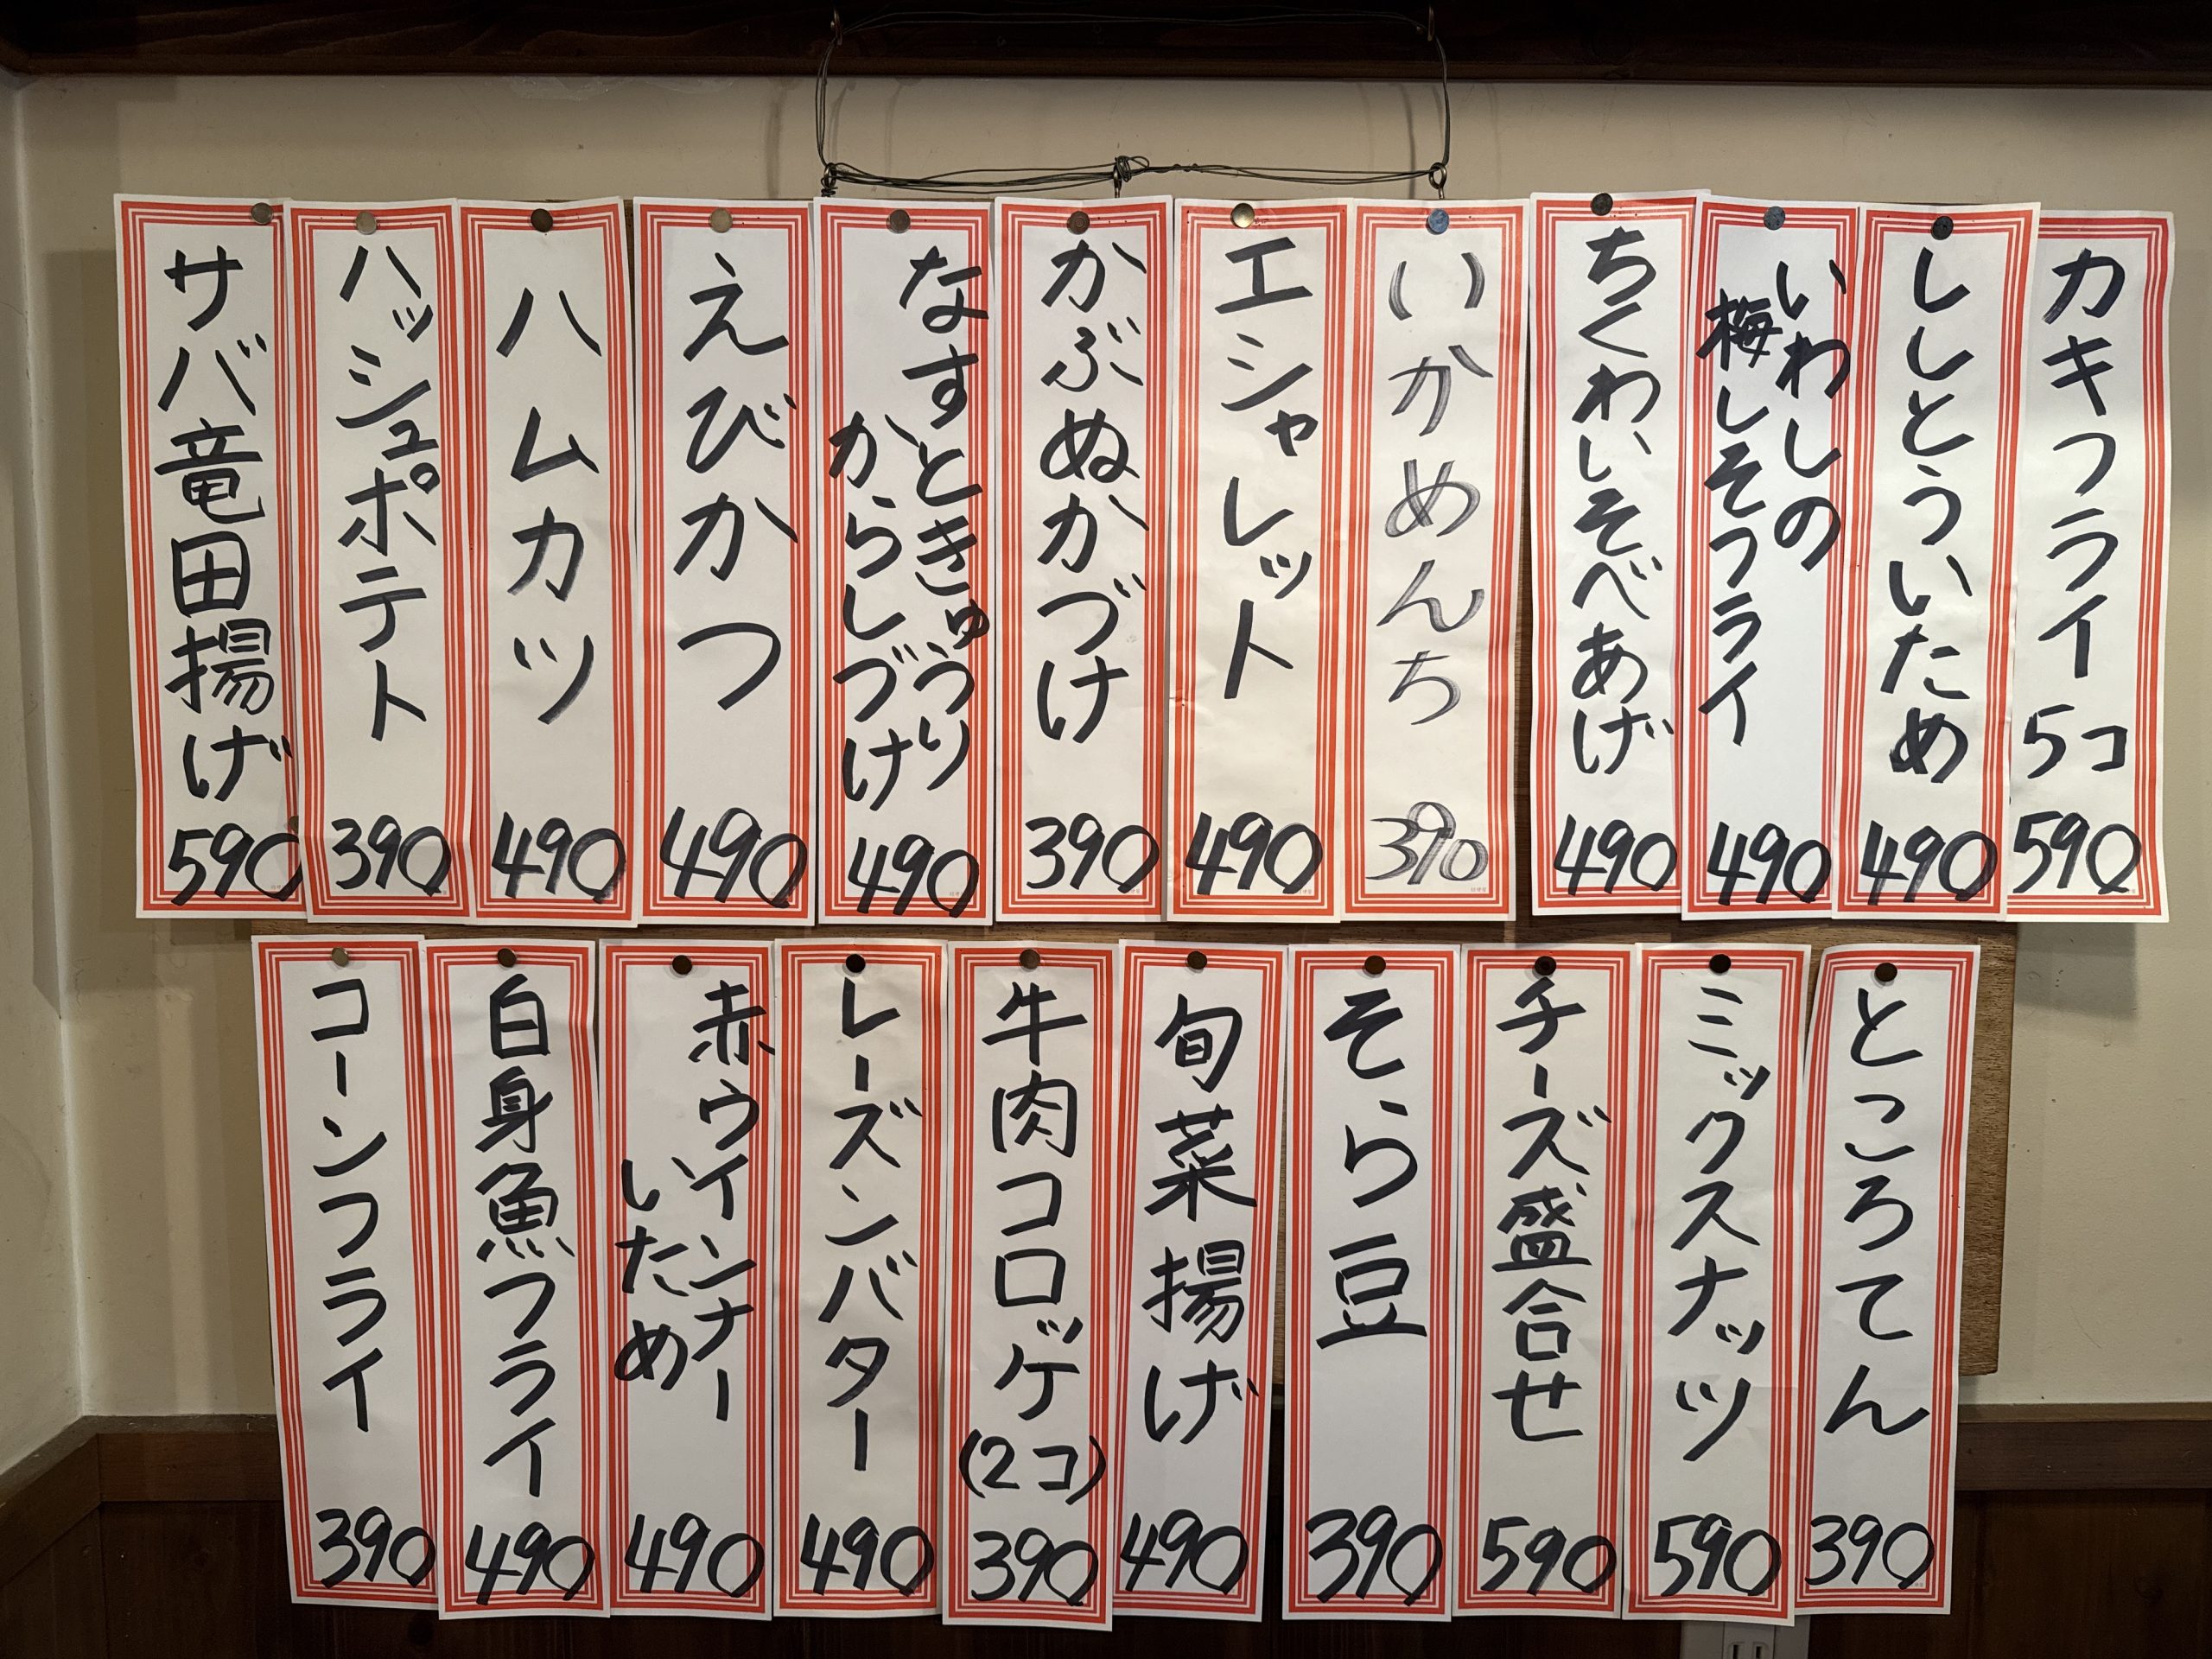 カキフライ 5コ
590
ししとういため
490
いわしの
梅しそフライ
490
ちくわいそべあげ
490
いかめんち
390
エシャレット
490
かぶぬかづけ
390
なすときゅうり
からしづけ
490
えびかつ
490
ハムカツ
490
ハッシュポテト
390
サバ竜田揚げ
590
ところてん
390
ミックスナッツ
590
チーズ盛合せ
590
そら豆
390
旬菜揚げ
490
牛肉コロッケ
(2コ)
390
レーズンバター
490
赤ウインナー
いため
490
白身魚フライ
490
コーンフライ
390